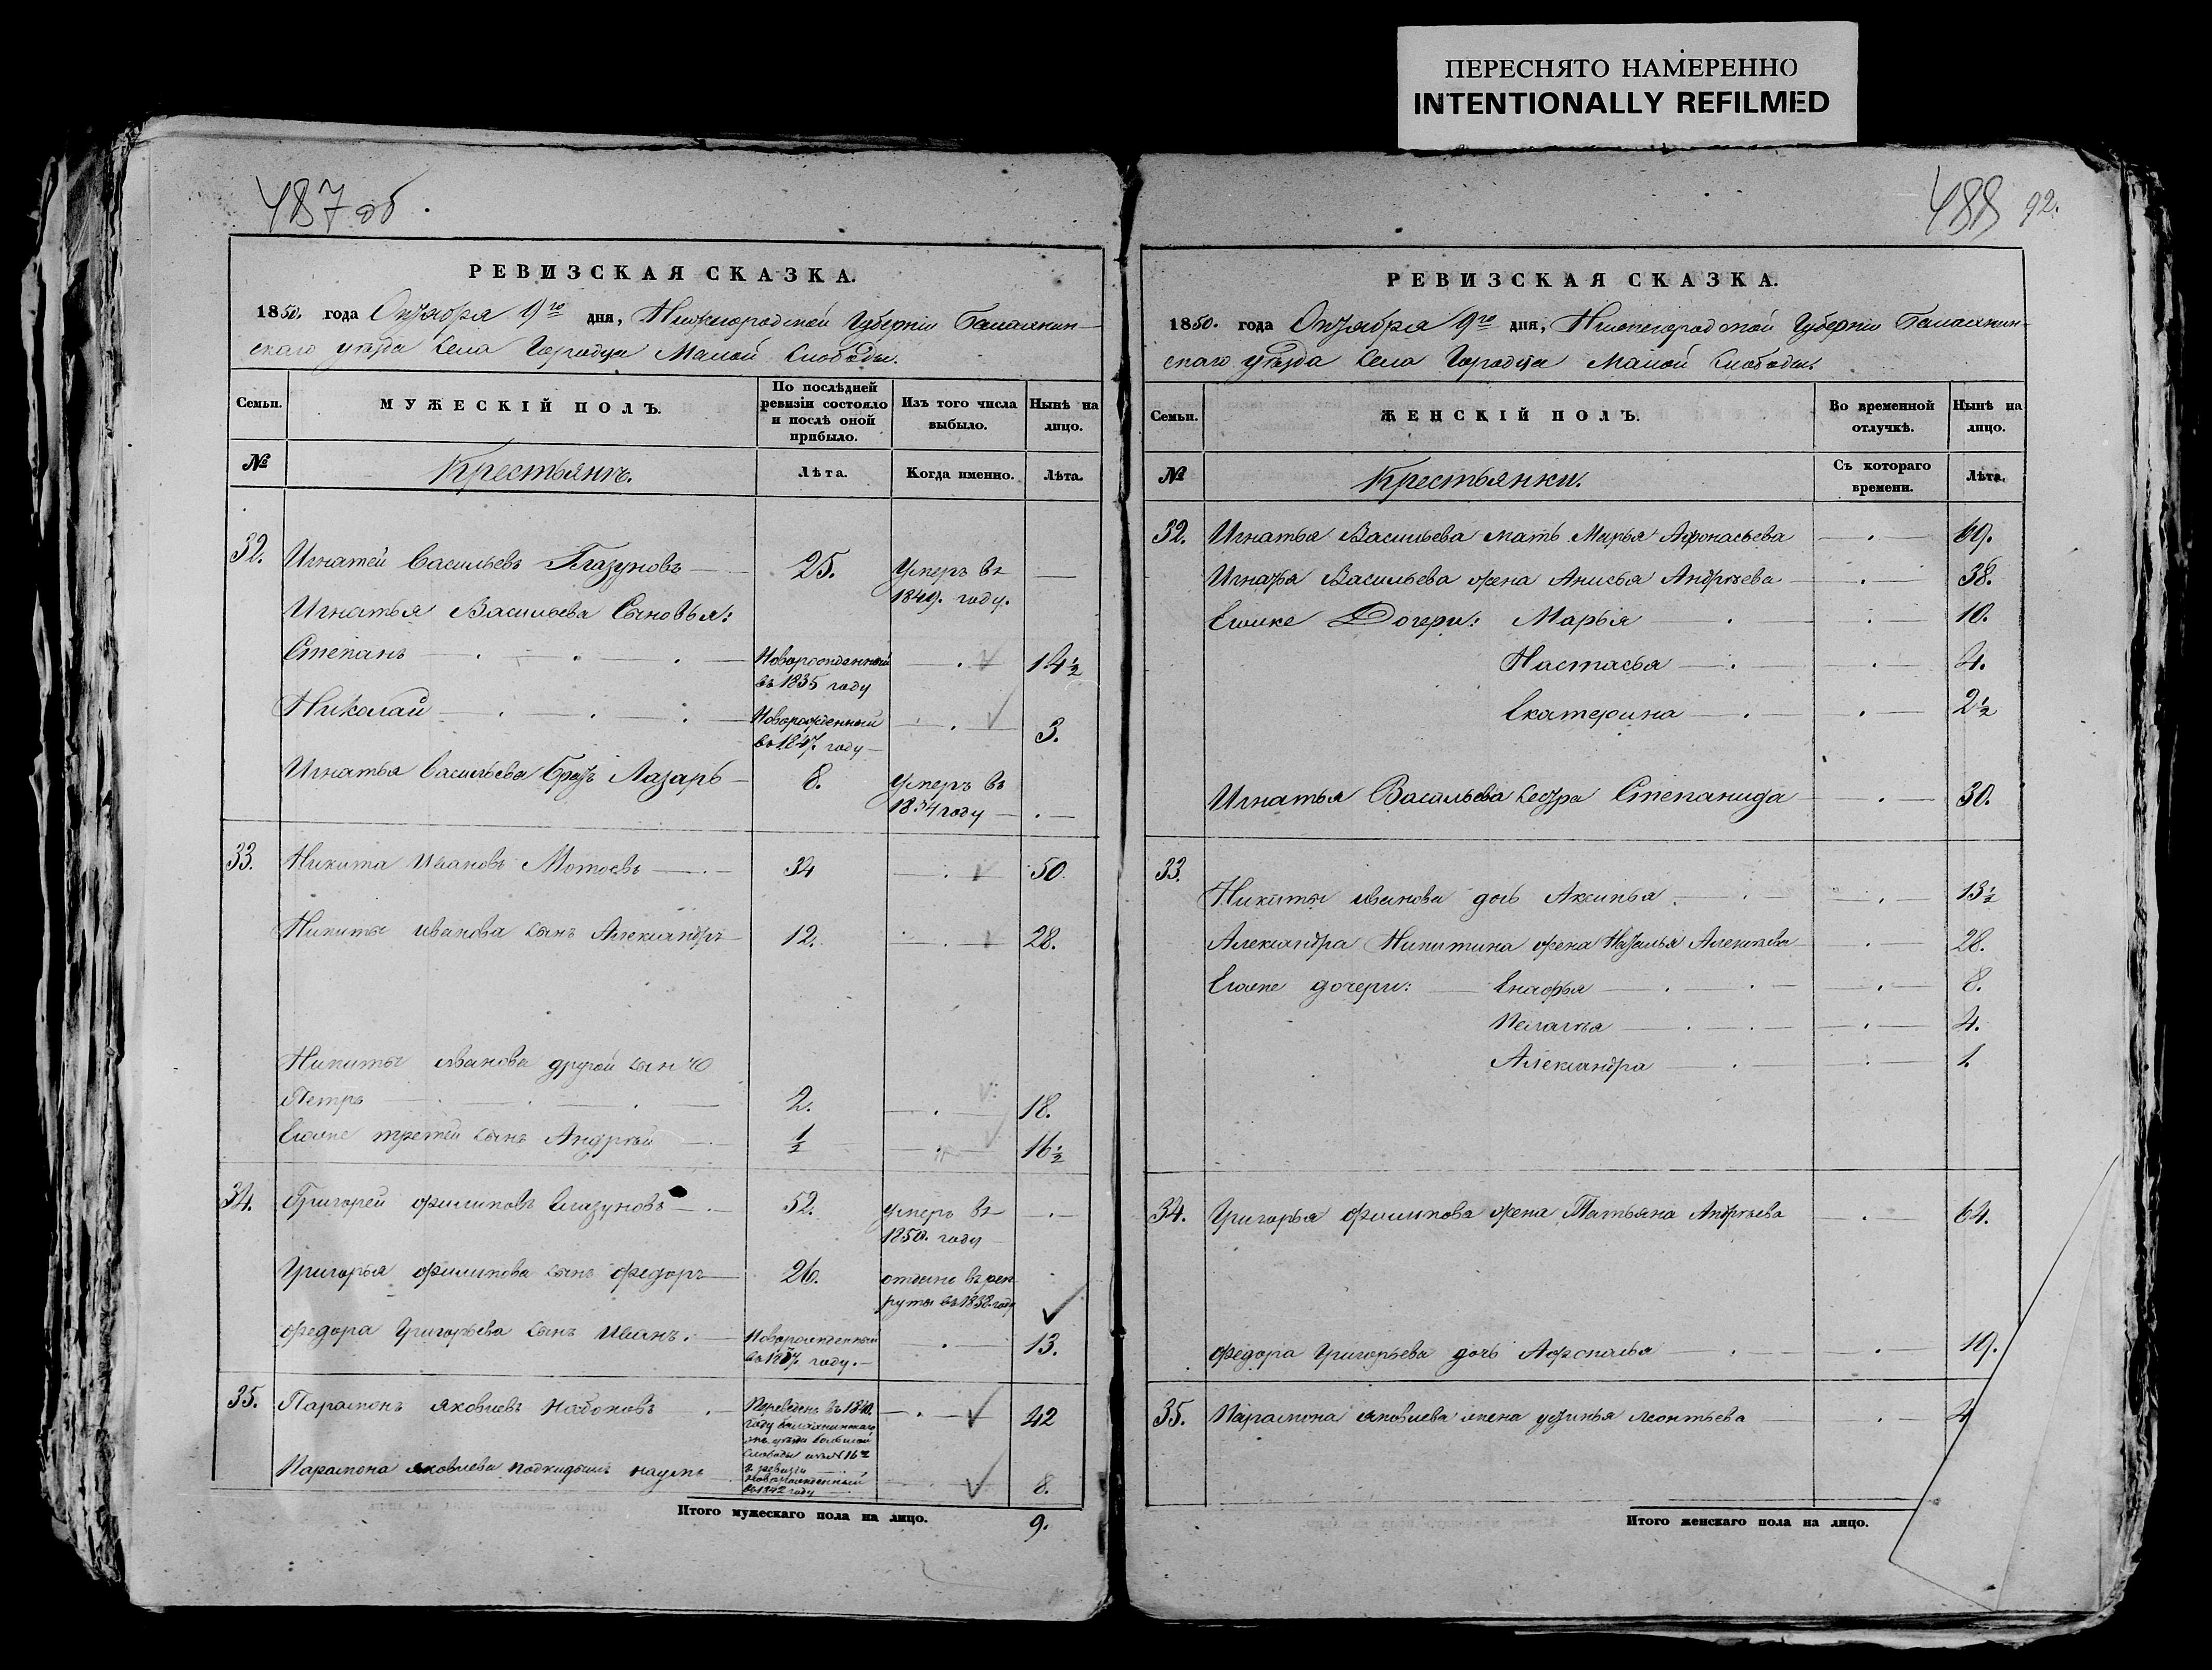 ПЕРЕСНЯТО НАМЕРЕННО
INTENTIONALLY REFILMED
487 об.
РЕВИЗСКАЯ СКАЗКА.
1850. года Октября 9го дня, Нижегородской Губернiи Балахнин-
скаго уѣзда Села Городца Малой Слободы.
Семьи.
МУЖЕСКIЙ ПОЛЪ.
По послѣдней ревизiи состояло и послѣ оной прибыло.
Изъ того числа выбыло.
Нынѣ на лицо.
№
Крестьянъ.
Лѣта.
Когда именно.
Лѣта.
32. Игнатей Васильевъ Глазуновъ 25. Умеръ въ 1849. году.
Игнатья Васильева Сыновья:
Степанъ Новорожденный въ 1835 году 14 1/2
Николай Новорожденный въ 1847. году 3.
Игнатья Васильева братъ Лазарь 8. Умеръ въ году
33. Никита Ивановъ Мотовъ 34 50.
Никиты Иванова сынъ Александръ 12. 28.
Никиты Иванова другой сынъ
Петръ 2. 18.
Егоже третей сынъ Андрѣй 1/2 16 1/2
34. Григорей Филиповъ Глазуновъ 52. умеръ въ 1850. году
Григорья Филипова сынъ Федоръ 26. отданъ въ рекруты въ 1838. году
Федора Григорьева сынъ Иванъ. Новорожденный въ 1837. году. 13.
35. Парамонъ Яковлевъ Набоковъ Переведенъ въ 1840. году Балахнинскаго уѣзда Большой Слободы 42
Парамона Яковлева подкидышъ Наумъ новорожденный въ 1842 году 8.
Итого мужескаго пола на лицо. 9.
488 92.
РЕВИЗСКАЯ СКАЗКА.
1850. года Октября 9го дня, Нижегородской Губернiи Балахнин-
скаго уѣзда Села Городца Малой Слободы.
Семьи.
ЖЕНСКIЙ ПОЛЪ.
Во временной отлучкѣ.
Нынѣ на лицо.
№
Крестьянки.
Съ котораго времени.
Лѣта.
32. Игнатья Васильева мать Марья Афонасьева 69.
Игнатья Васильева жена Анисья Андрѣева 38.
Егоже Дочери: Марья 10.
Настасья 4.
Екатерина 2 1/2
Игнатья Васильева сестра Степанида 30.
33.
Никиты Иванова дочь Аксинья 13 1/2
Александра Никитина жена Наталья Алексѣева 28.
Егоже дочери: Енафья 8.
Пелагѣя 4.
Александра 1.
34. Григорья Филипова жена Татьяна Андрѣева 64.
Федора Григорьева дочь Афональя 19.
35. Парамона Яковлева жена Устинья Леонтьева
Итого женскаго пола на лицо.